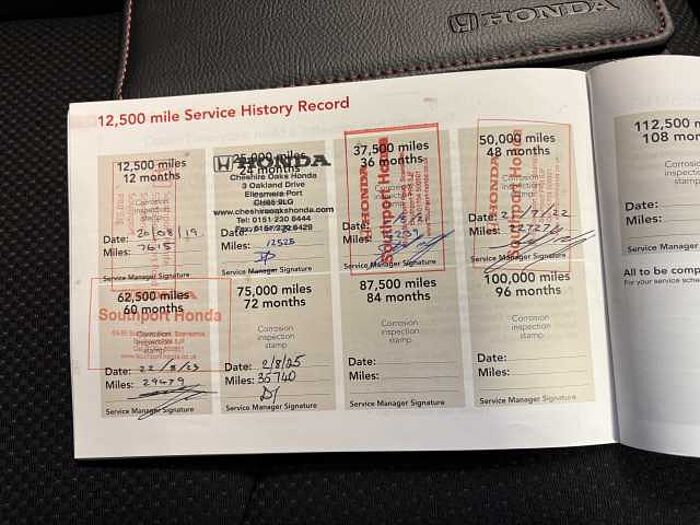 HONDA
12,500 mile Service History Record
12,500 miles
12 months
Corrosion
inspection
stamp
Date: 20/08/19
Miles: 7615
Service Manager Signature
25,000 miles
24 months
HONDA
Cheshire Oaks Honda
3 Oakland Drive
Ellesmere Port
CH65 9LG
www.cheshireoakshonda.com
Tel: 0151 230 6444
Date:
Miles: 12525
Service Manager Signature
37,500 miles
36 months
HONDA
Southport Honda
Date:
Miles:
Service Manager Signature
50,000 miles
48 months
HONDA
Southport Honda
Date:
Miles:
Service Manager Signature
62,500 miles
60 months
Southport Honda
Corrosion
inspection
stamp
Date: 22/8/23
Miles: 29479
Service Manager Signature
75,000 miles
72 months
Corrosion
inspection
stamp
Date: 2/8/25
Miles: 35740
Service Manager Signature
87,500 miles
84 months
Corrosion
inspection
stamp
Date:
Miles:
Service Manager Signature
100,000 miles
96 months
Corrosion
inspection
stamp
Date:
Miles:
Service Manager Signature
112,500
108 mon
Date:
Miles:
Service Manager
All to be comp
For your service